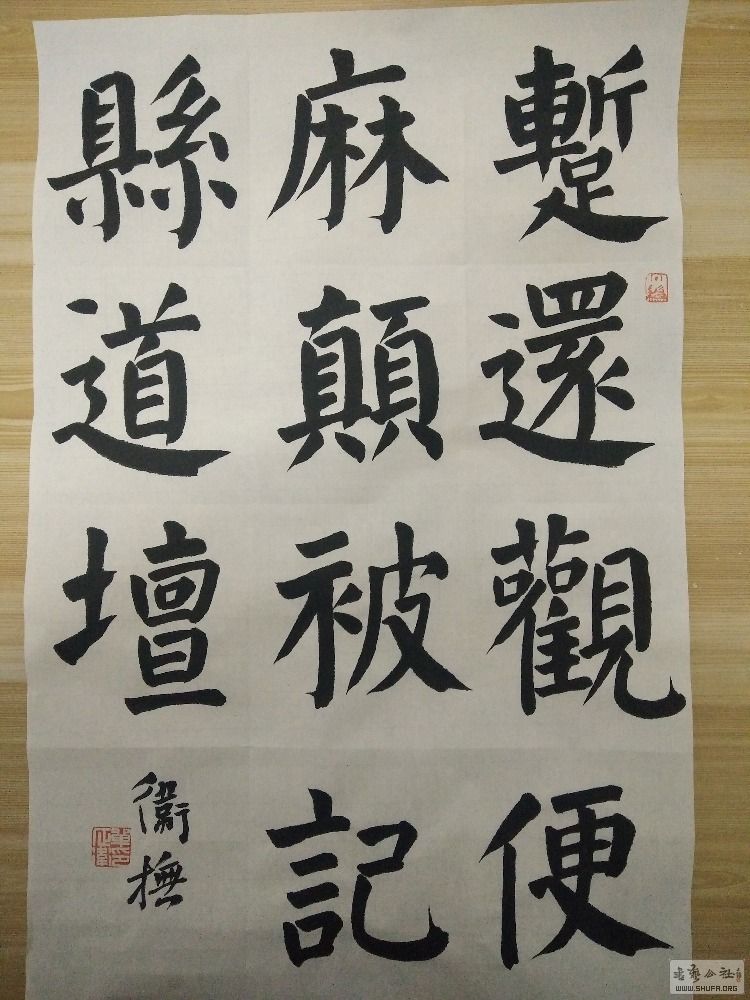 蹔還觀便
麻顛被記
縣道壇
衞撫
WWW.SHUFA.ORG